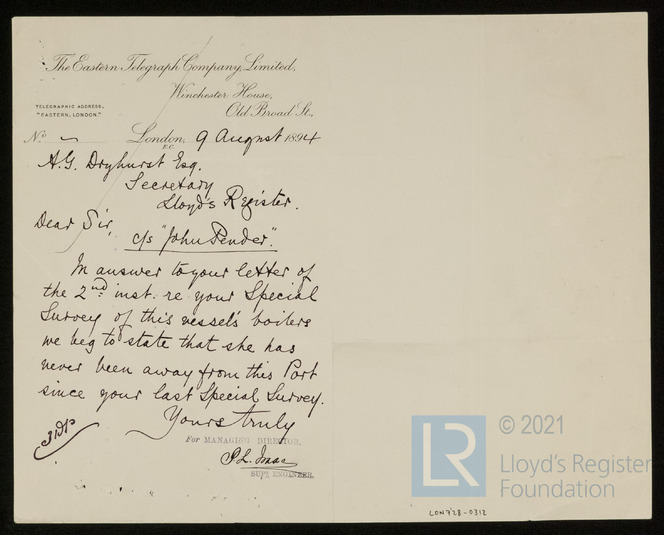 The Eastern Telegraph Company, Limited,
Winchester House,
Old Broad St.,
TELEGRAPHIC ADDRESS,
"EASTERN, LONDON."
No.
London, 9 August 1894
E.C.
A.G. Dryhurst Esq.
Secretary
Lloyd's Register.
Dear Sir,
c/s "John Pender".
In answer to your letter of
the 2nd inst. re your Special
Survey of this vessel's boilers
we beg to state that she has
never been away from this Port
since your last Special Survey.
Yours truly
For MANAGING DIRECTOR.
Isaac
SUPT ENGINEER.
LR
© 2021
Lloyd's Register
Foundation
LON728-0312